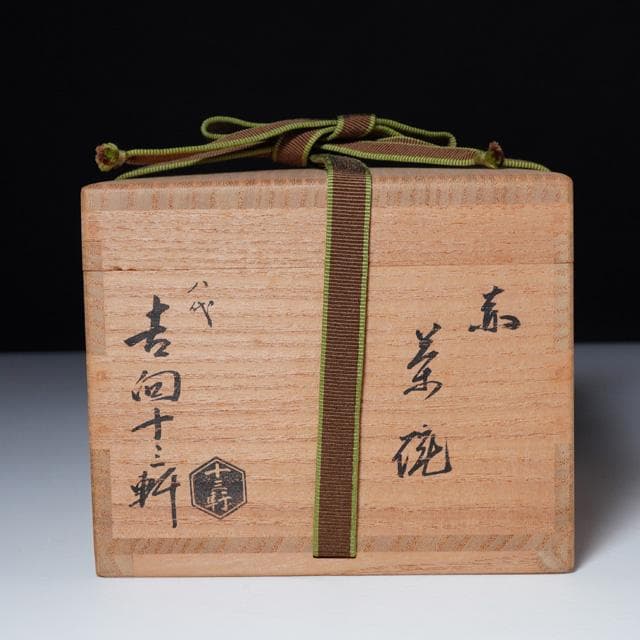 赤
茶碗
八代
吉向十三軒
十三軒